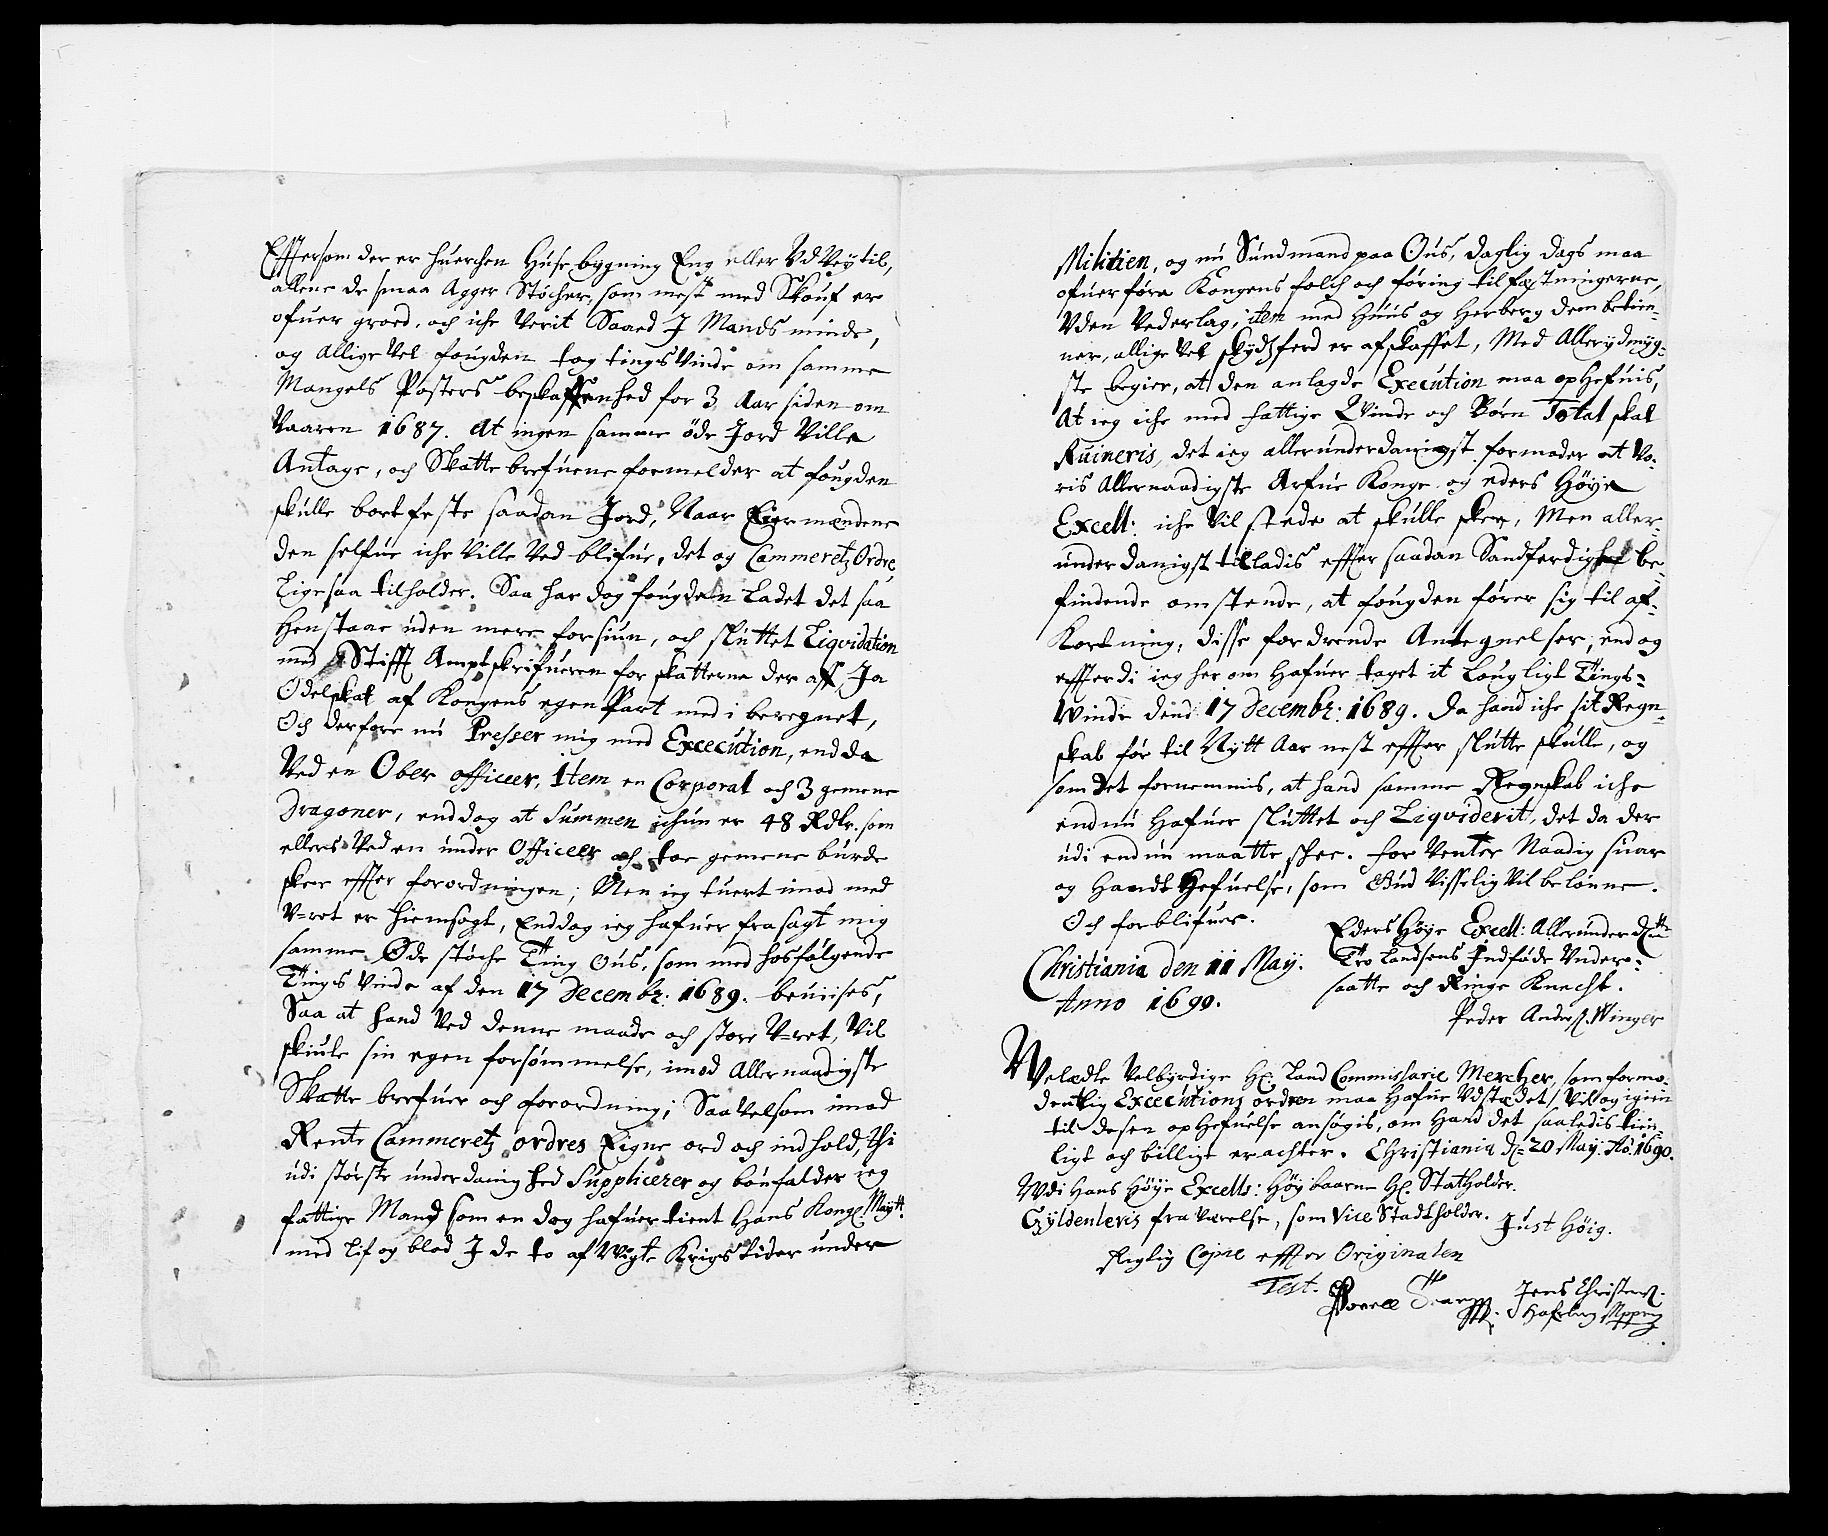 Effersom der er huerchen Huse bygning Eng eller Vd Vey til,
allene de smaa Agger Støcher, som mest med Skouf er
ofuer groed, och iche Verit Saaed J Mands minde,
og Allige Vel fougden tog tings Vinde om samme
Mangels Posters beskaffenhed for 3 Aar siden om
Vaaren 1687. At ingen samme øde Jord Ville
Antage, och Skatte brefuene formelder at fougden
skulle bortfeste saadan Jord, Naar Eiermændene
den selfue iche Ville Ved blifue, det og Cammeretz Ordre
Ligesaa tilholder. Saa har dog fougden Ladet det saa
Henstaae uden mere forsiun, och sluttet Liqvidation
med Stifft Ampt skrifueren for skatterne der aff, Ja
Odelskat af Kongens egen Part med i beregnet,
Och derfore nu Presser mig med Excecution, end da
Ved en Ober officeer, Item en Corporal och 3 gemene
Dragoner, enddog at Summen ichun er 48 Rdlr. som
ellers Ved en under Officeer och toe gemene burde
skee effter forordningen; Men ieg tuert imod med
V=ret er hiemsøgt, Enddog ieg hafuer frasagt mig
samme Øde støche Ting Ous, som med hosfølgende
Tings Vinde af den 17 Decembr: 1689. beuiises,
Saa at hand Ved denne maade och store V=ret, Vil
skiule sin egen forsømmelse, imod Allernaadigste
Skatte brefuer och forordning; Saa Velsom imod
Rente Cammeretz ordres Eigne ord och indhold, thi
udi største underdanighed Supplicerer og bønfalder ieg
fattige Mand som en dog hafuer tient Hans Konge Maytt.
med Lif og blod J de to af Vigte Krigs tider under
Militien, og nu Sundmand paa Ous, daglig dags maa
ofuerføre Kongens folch och føring til fæstningerne,
Vden Vederlag, item med Huus og Herberg dem betien=
ner, allige Vel skydtzferd er afskaffet, Med Allerydmyg=
ste begier, at den anlagde Execution maa ophefuis,
At ieg iche med fattige Qvinde och Børn Total skal
Ruineris, det ieg allerunderdanigst formoder at Vo=
ris Allernaadigste Arfue Konge og eders Høye
Excell: iche Vil stede at skulle skee, Men aller=
underdanigst tilladis effter saadan Sandferdighed be=
findende omstende, at fougden fører sig til af=
Kortning, disse fordrende Antegnelser, end og
efferdi ieg her om Hafuer taget it Lougligt Tings=
Winde dend 17 Decembr: 1689. Da hand iche sit Regn=
skab før til Nytt Aar nest effter slutte skulle, og
som det fornemmis, at hand samme Regnskab iche
endnu Hafuer sluttet och Liqviderit, det da der
udi endnu maatte skee. forVenter Naadig suar
og Handt Hefuelse, som Gud Visselig Vil belønne.
Och forblifuer.
Eders Høye Excell: Allerunderd:te
Tro Landsens Jndføde Vnder=
saatte och Ringe Knecht.
Peder Anders. Winger
Christiania den 11 May.
Anno 1690.
Welædle Velbyrdige Hr. Land Commissarie Mercher, som formo=
dentlig Excecutions ordren maa Hafue Vdstædet, Vil og igien
til desen ophefuelse ansøgis, om Hand det saaledis tien=
ligt och billigt erachter. Christiania d= 20 May. Ao. 1690.
Wdi Hans Høye Excells: Høybaarne Hr. Statholder
Gyldenleris fraværelse, som Vice Stadtholder. Just Høig.
Rigtig Copie effter Originalen
Test.
Jens Christens.